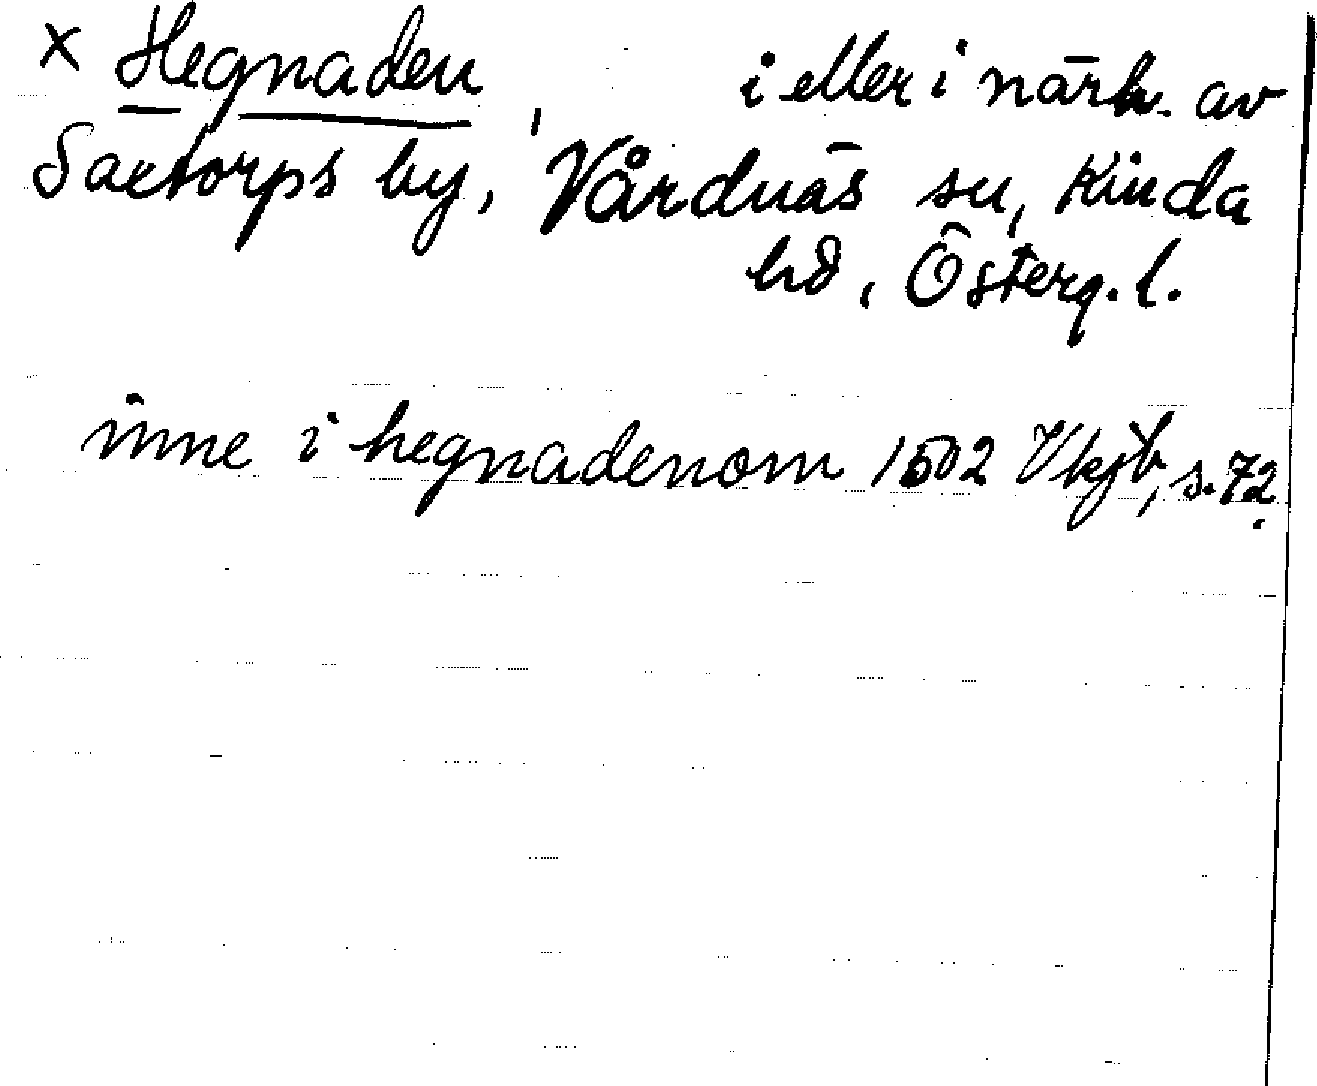 x Hegnaden, i eller i närh. av
Saetorps by, Vårdnäs sn, Kinda
hd, Österg. l.
inne i hegnadenom 1502 Vkjb, s. 72.